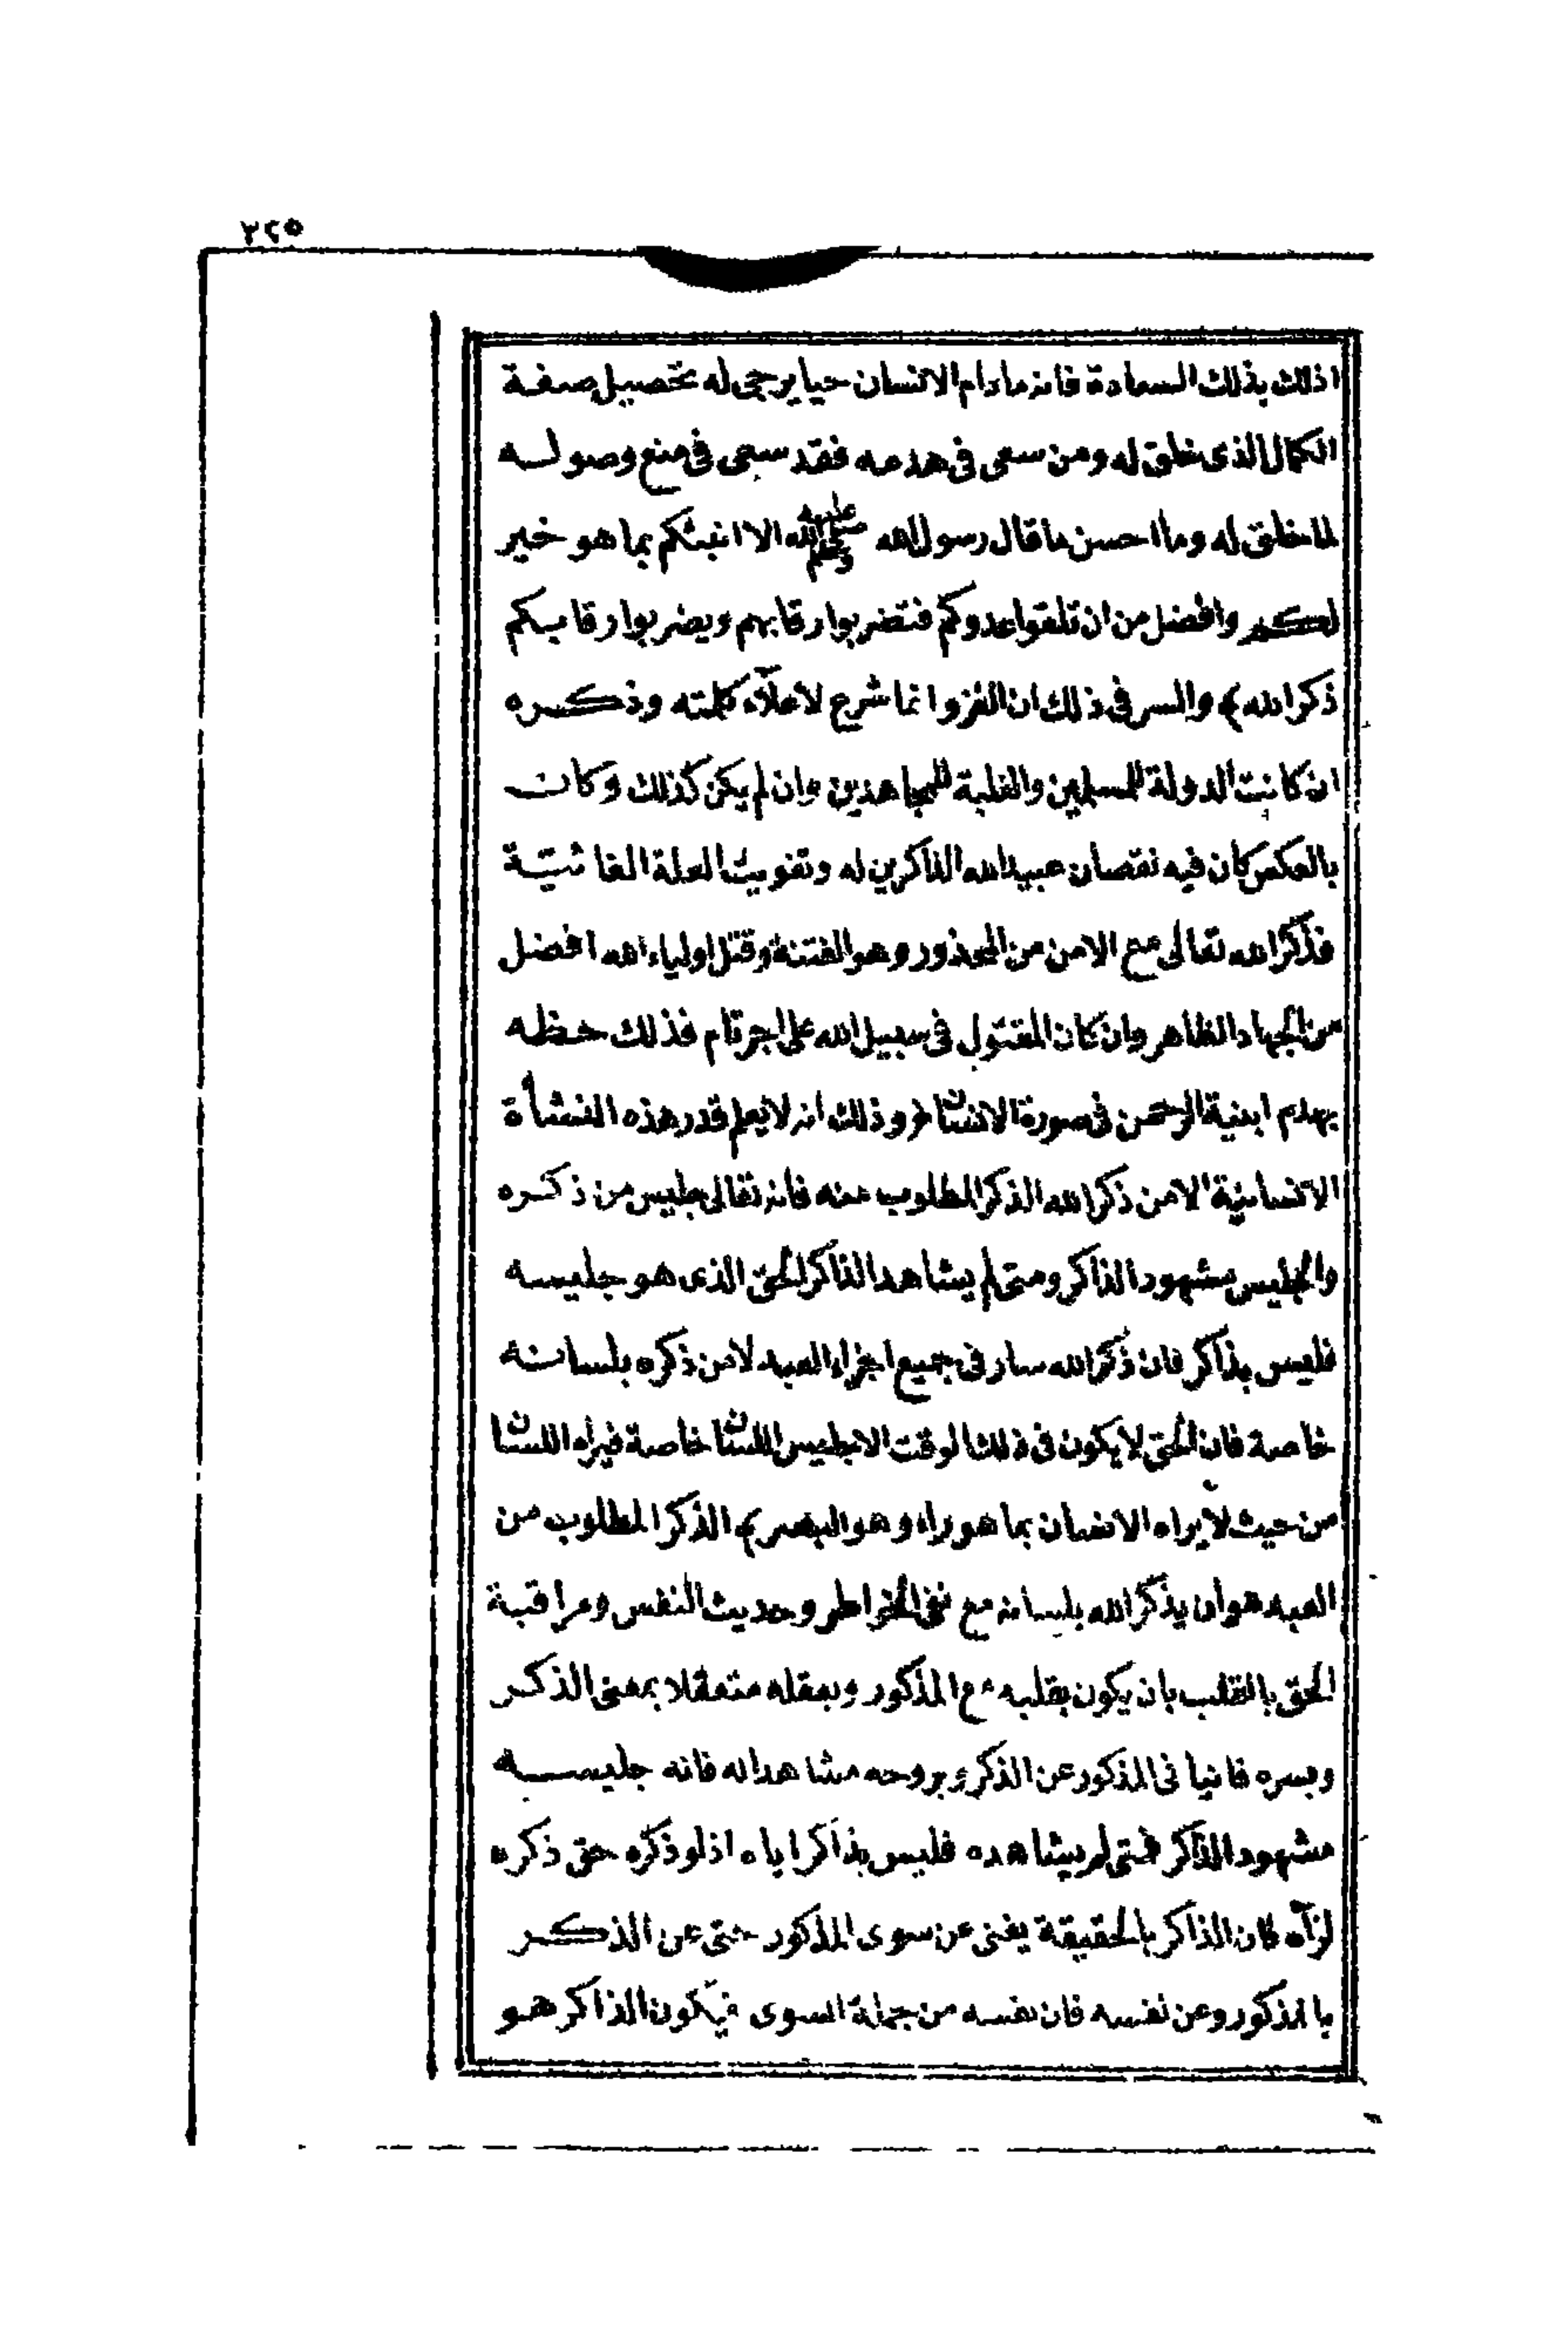 ٣٢٥
اذلك بذلك السعادة فانه مادام الانسان حيا يرجى له تحصيل صفة
الكمال الذى خلق له ومن سعى فى هدمه فقد سعى فى منع وصوله
لما خلق له وما احسن ما قال رسول الله صلى الله عليه وسلم الا انبئكم بما هو خير
لكم وافضل من ان تلقوا عدوكم فتضربوا رقابهم ويضربوا رقابكم
ذكر الله ﴾ والسر فى ذلك ان الغزو انما شرع لاعلاء كلمته وذكره
ان كانت الدولة للمسلمين والغلبة للمجاهدين وان لم يكن كذلك وكان
بالعكس كان فيه نقصان عبيد الله الذاكرين له وتفويت العلة الغائيّة
فذكر الله تعالى مع الامن من المحذور وهو الفتنة وقتل اولياء الله افضل
من الجهاد الظاهر وان كان المقتول فى سبيل الله على اجر تام فذلك حظه
بهدم ابنية الرحمن فى صورة الانسان ﴿ وذلك انه لا يعلم قدر هذه النشأة
الانسانية الا من ذكر الله الذكر المطلوب منه فانه تعالى جليس من ذكره
والجليس مشهود الذاكر ومتى لم يشاهد الذاكر الحق الذى هو جليسه
فليس بذاكر فان ذكر الله سار فى جميع اجزاء العبد لا من ذكره بلسانه
خاصة فان الحق لا يكون فى ذلك الوقت الا جليس اللسان خاصة فيراه اللسان
من حيث لا يراه الانسان بما هو راء وهو البصر ﴾ الذكر المطلوب من
العبد هو ان يذكر الله بلسانه مع نفى الخواطر وحديث النفس ومراقبة
الحق بالقلب بان يكون بقلبه مع المذكور وبعقله متعقلا بمعنى الذكر
وبسره فانيا فى المذكور عن الذكر وبروحه مشاهدا له فانه جليسه
مشهود الذاكر فمتى لم يشاهده فليس بذاكر اياه اذ لو ذكره حق ذكره
لرآه كان الذاكر بالحقيقة يفنى عن سوى المذكور حتى عن الذكر
بالمذكور وعن نفسه فان نفسه من جملة السوى فيكون الذاكر هو